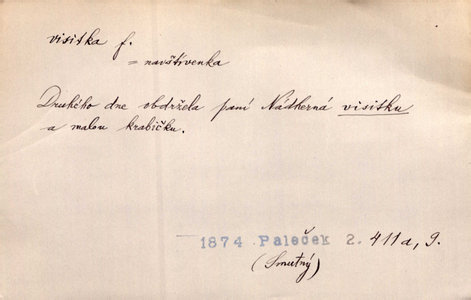 visitka f.
= navštívenka
Druhého dne obdržela paní Nádherná visitku
a malou krabičku.
1874 Paleček 2. 411a, 9.
(Smutný)